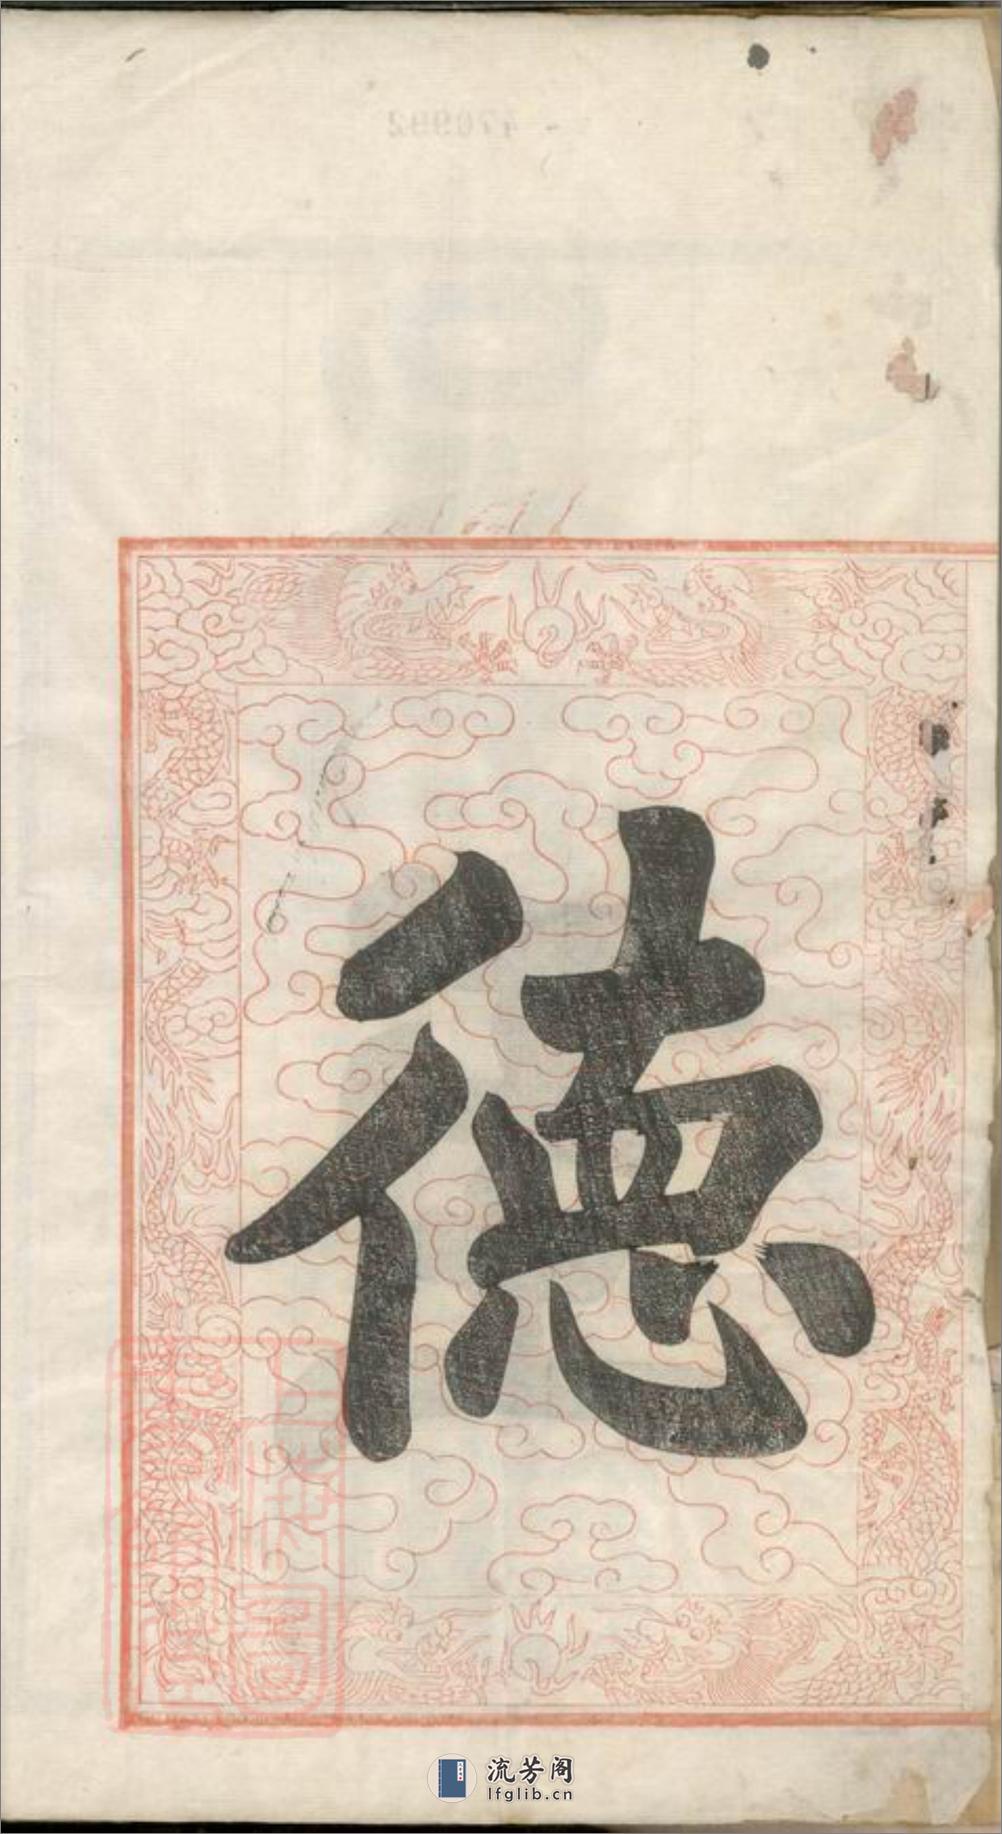 470992
德
流芳阁
lfglib.cn